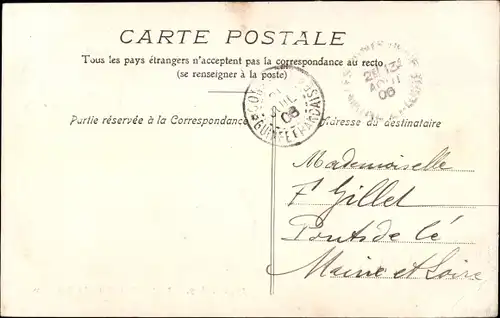 CARTE POSTALE
Tous les pays étrangers n'acceptent pas la correspondance au recto
(se renseigner à la poste)
GUINÉE FRANÇAISE
JUIL
06
2E
AOUT
06
Partie réservée à la Correspondance
Adresse du destinataire
Mademoiselle
F Gillet
Ponts de Cé
Maine et Loire